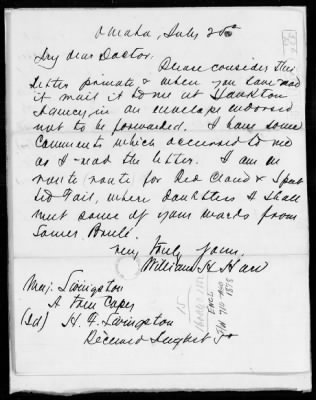 Omaha, July 25th
My dear Doctor.
Please consider this
letter private & when you have read
it mail it to me at Yankton
Agency in an envelope endorsed
not to be forwarded. I have some
comments which occurred to me
as I read the letter. I am en
route route for Red Cloud & Spot
ted Tail, where doubtless I shall
meet some of your wards from
Lower Brulé.
Very truly yours,
William H. Hare
Maj. Livingston
A true Copy
(Sd) H. F. Livingston
Received August
15
Encl
1878